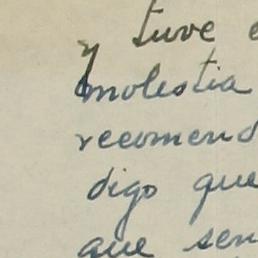 y tuve
molestia
recomend
digo que
que sen